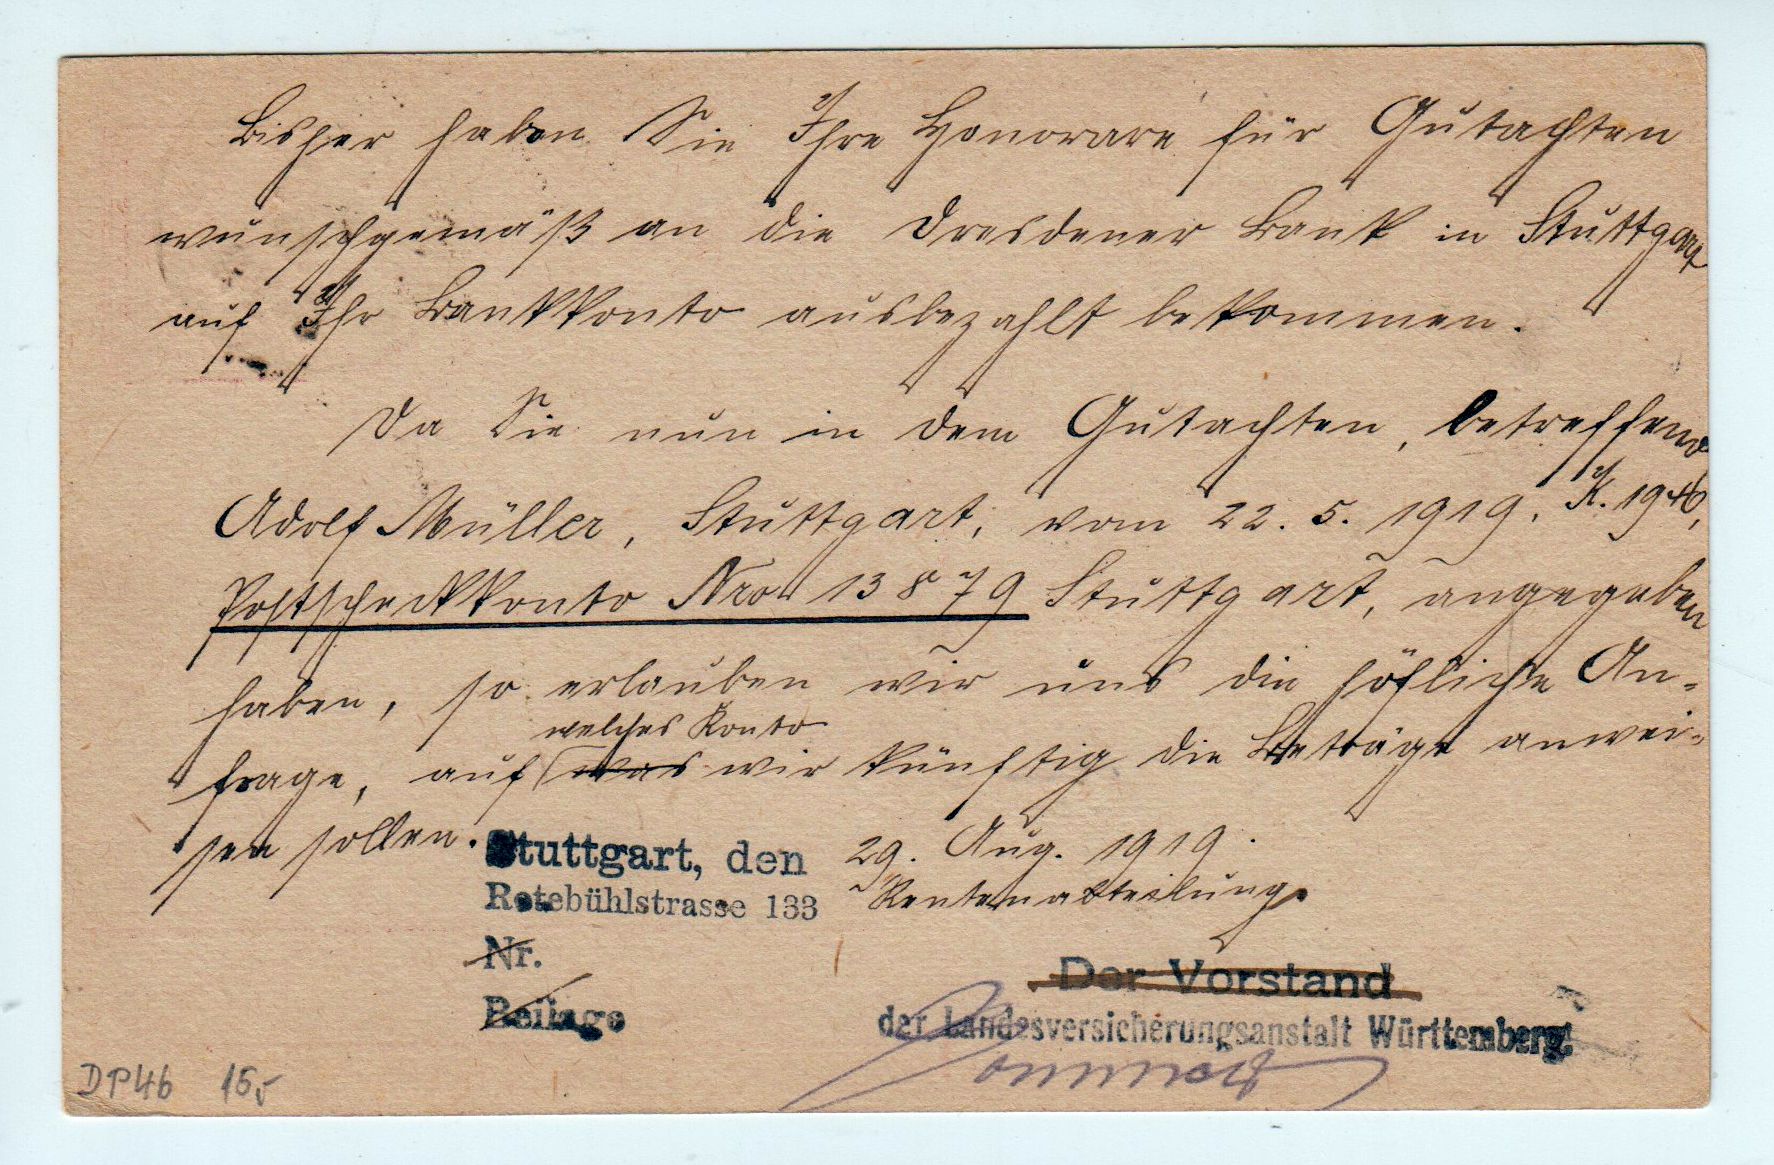 Bisher haben Sie Ihre Honorare für Gutachten
wunschgemäß an die Dresdener Bank in Stuttgart
auf Ihr Bankkonto ausbezahlt bekommen.
Da Sie nun in dem Gutachten, betreffend
Adolf Müller, Stuttgart, vom 22. 5. 1919,
Postscheckkonto Nro 13879 Stuttgart, angegeben
haben, so erlauben wir uns die höfliche An-
welches Konto
frage, auf was wir künftig die Beträge anwei-
sen sollen.
Stuttgart, den 29. Aug. 1919.
Rotebühlstrasse 133 Rentenabteilung.
Nr.
Beilage
Der Vorstand
der Landesversicherungsanstalt Württemberg.
DP46 15,-